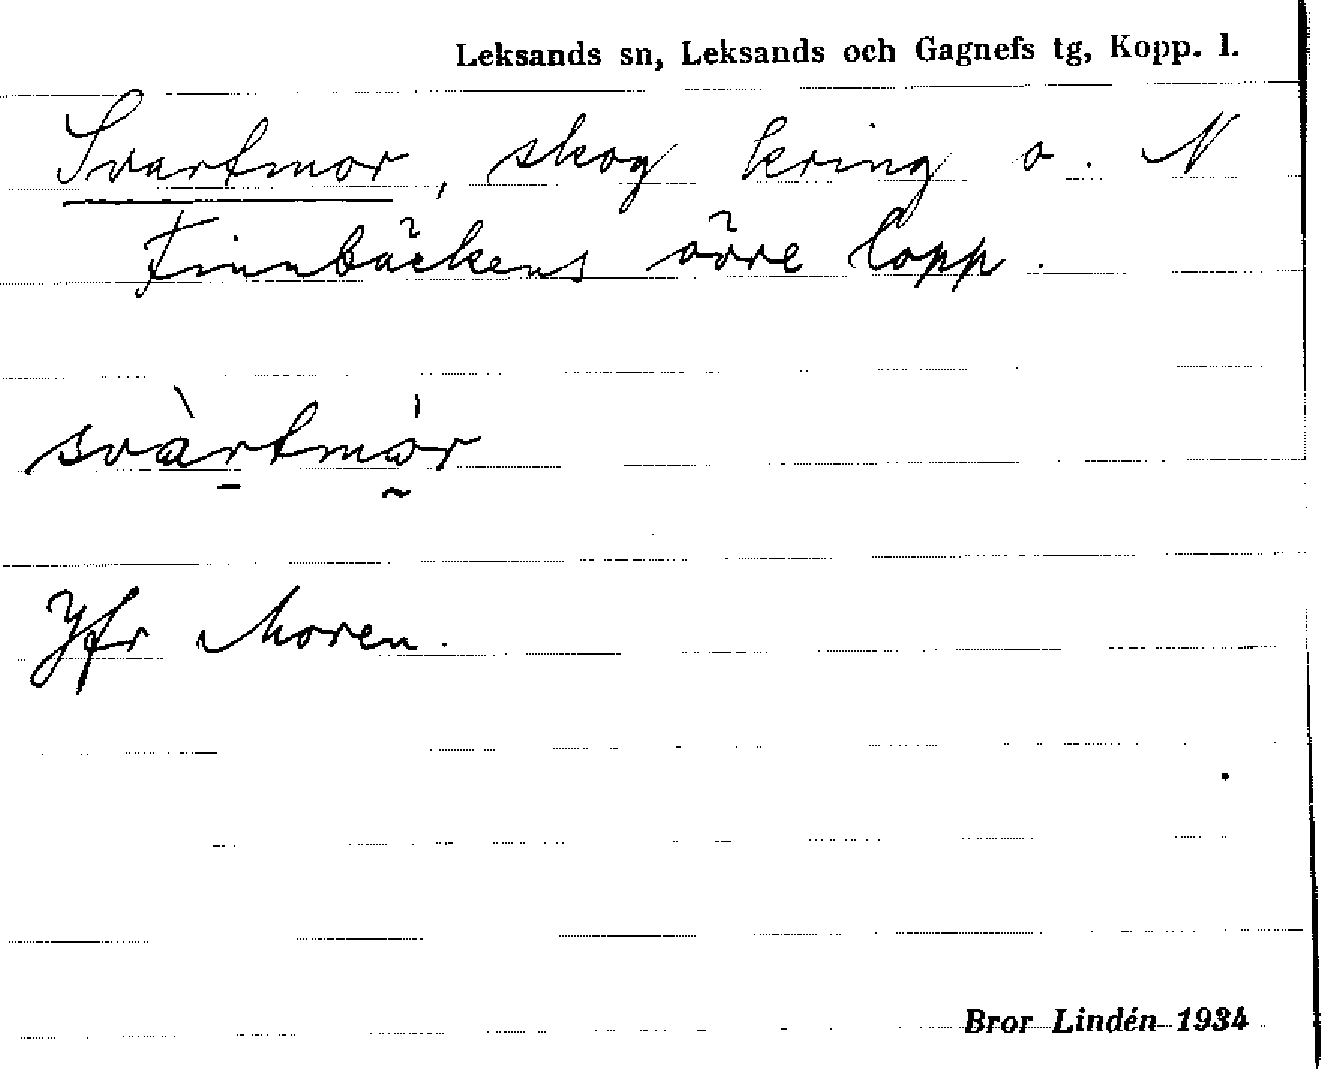 Leksands sn, Leksands och Gagnefs tg, Kopp. l.
Svartmor, skog kring o. N
Finnbäckens övre lopp.
svàrtmór
Jfr Moren.
Bror Lindén 1934